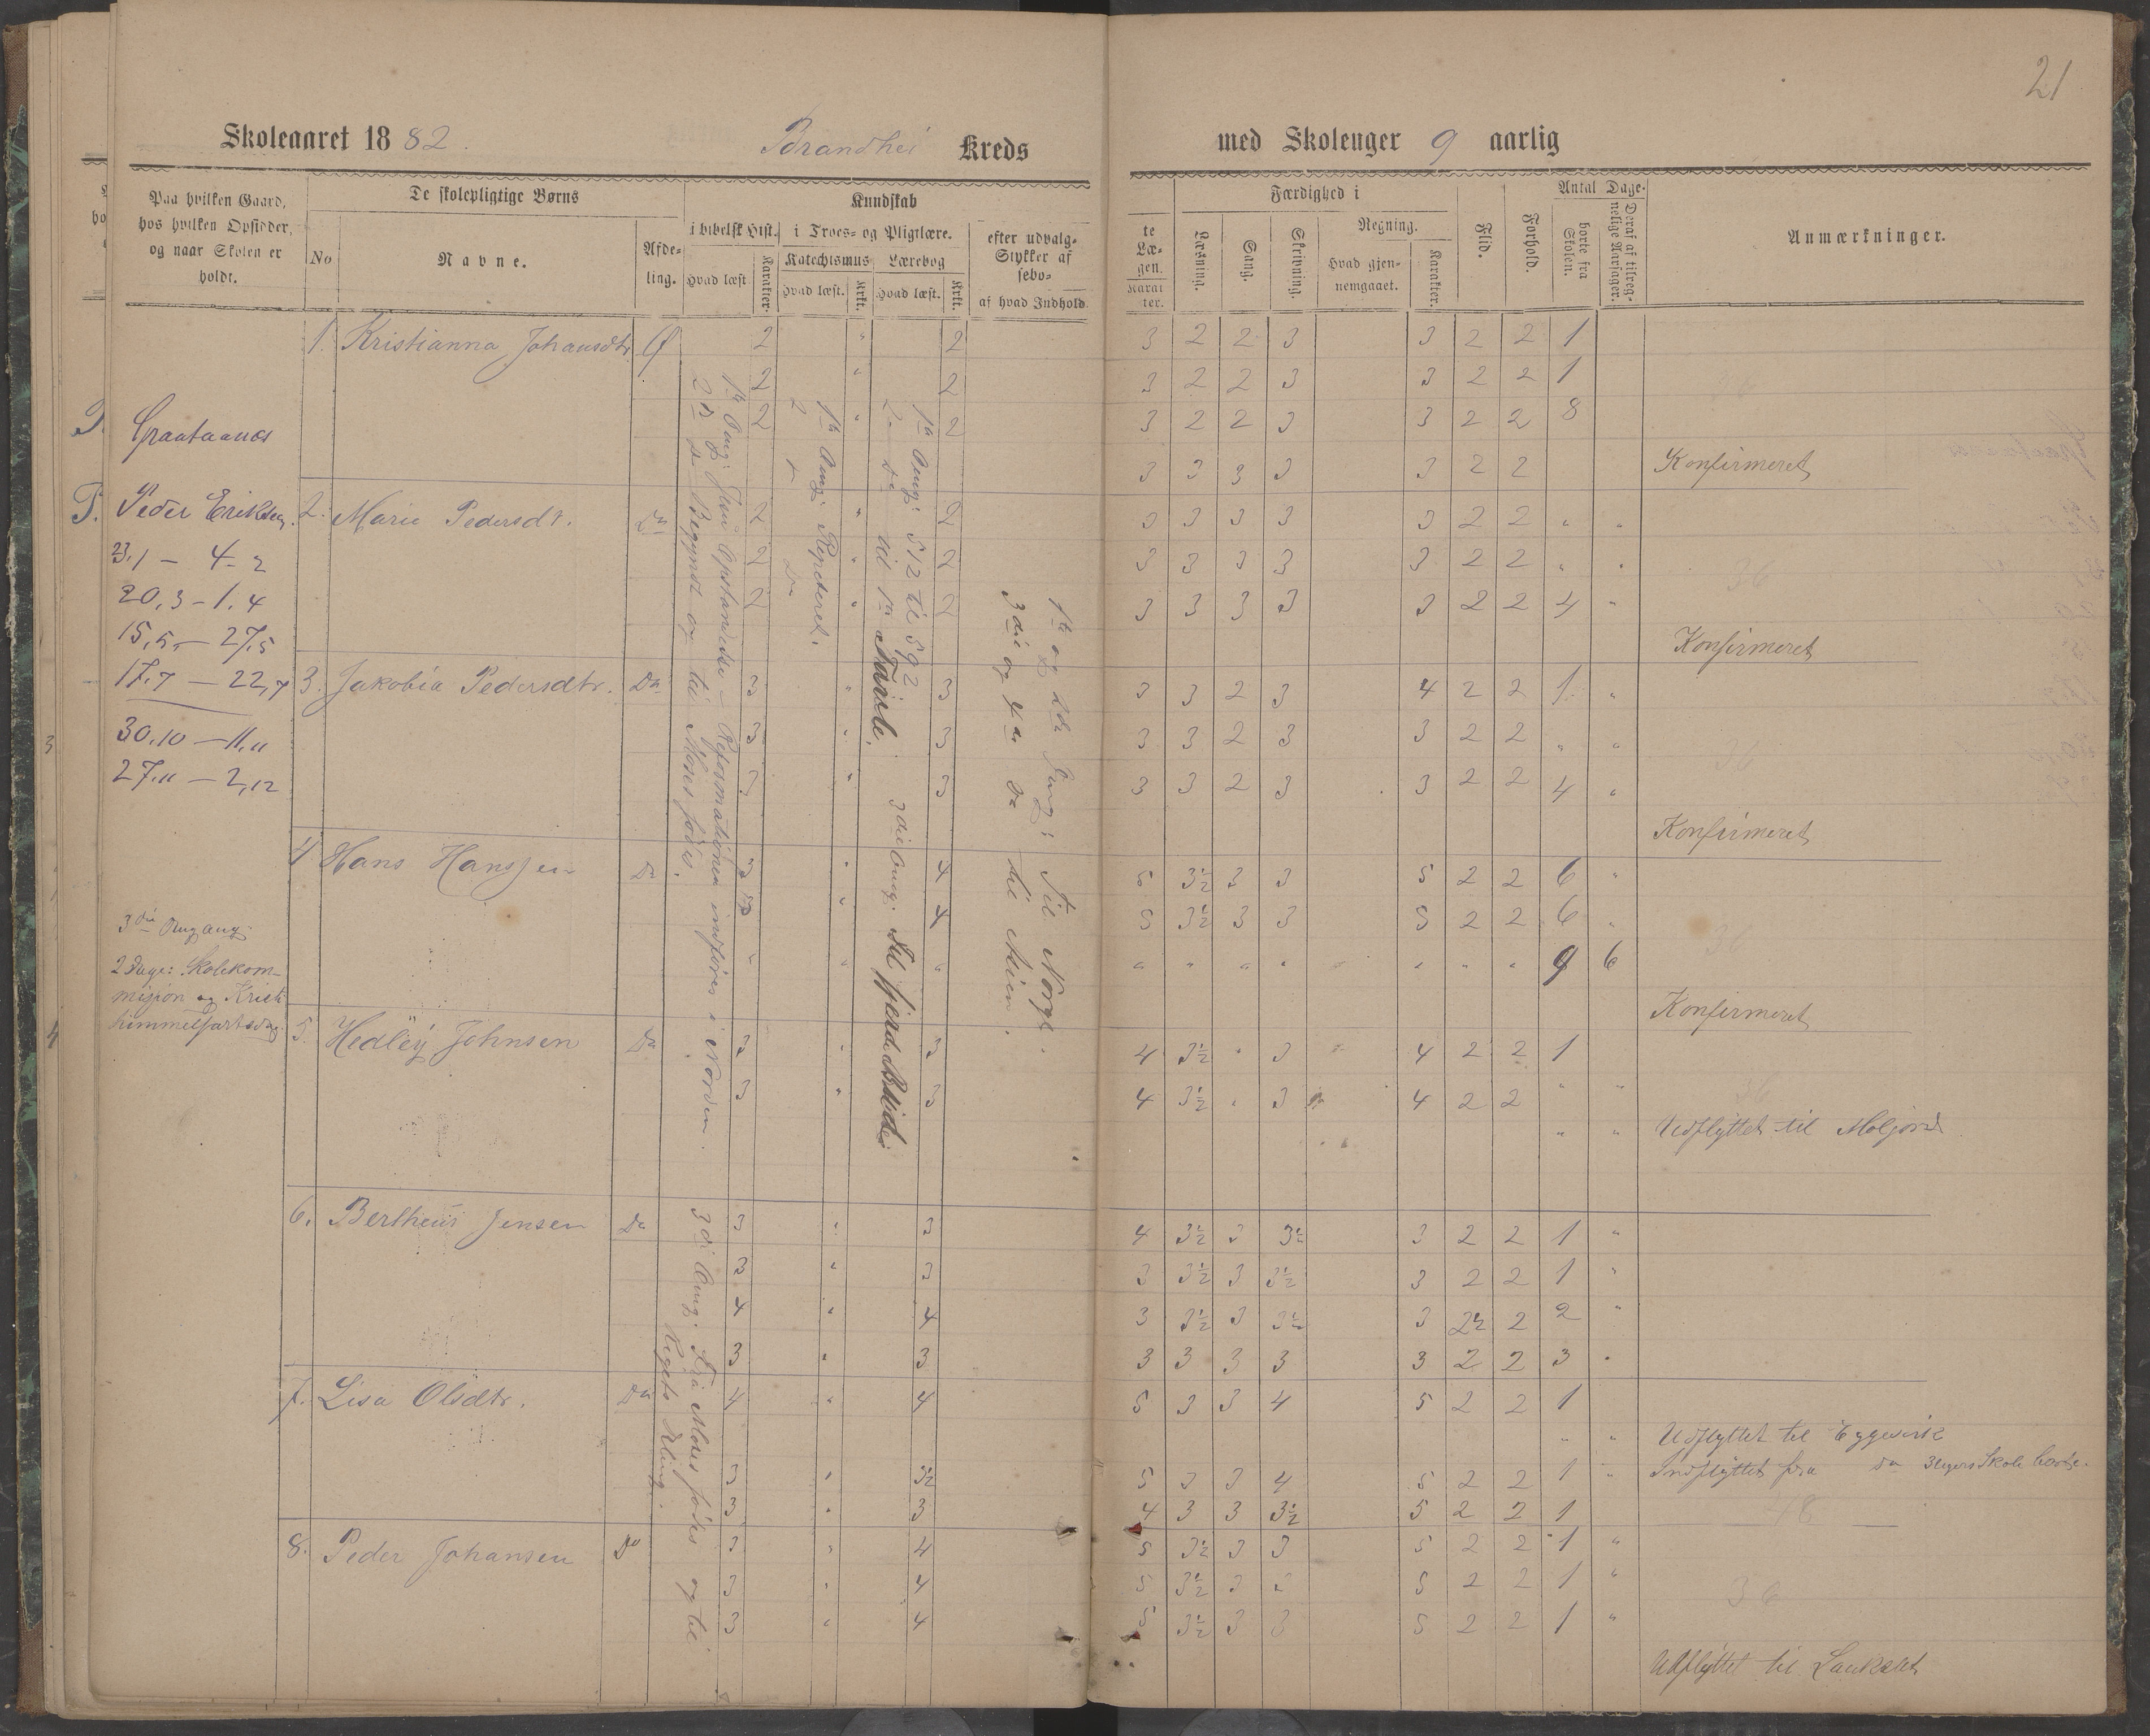 21
Skoleaaret 1882. Brandhei Kreds med Skoleuger 9 aarlig
Paa hvilken Gaard, hos hvilken Opsidder, og naar Skolen er holdt.
De skolepligtige Børns
No
Navne.
Afdeling.
Kundskab
i bibelsk Hist.
Hvad læst
Karakter.
i Troes- og Pligtlære.
Katechismus
Hvad læst.
Krkt.
Lærebog
Hvad læst.
Krkt.
efter udvalg-
Stykker af
sebo-
af hvad Indhold
te
Læ-
gen.
Karak
ter.
Færdighed i
Læsning.
Sang.
Skrivning.
Regning.
Hvad gjen-
nemgaaet.
Karakter.
Flid.
Forhold.
Antal Dage.
borte fra Skolen.
Deraf af tilreg-
nelige Aarsager.
Anmærkninger.
Graataanes
Peder Eriksen.
23,1 – 4-2
20,3 – 1,4
15,5, – 27,5
17,7 – 22,7
30,10 – 11,11
27,11 – 2,12
3die Omgang
2 Dage: Skolekom-
misjon og Kristi
himmelfartsdag.
1. Kristianna Johansdtr.
2 " 2 3 2 2 3 3 2 2 1
2 " 2 3 2 2 3 3 2 2 1
2 " 2 3 2 2 3 3 2 2 8
3 3 3 3 3 2 2 Konfirmeret
2. Marie Pedersdt. Do
2 " 2 3 3 3 3 3 2 2 " "
2 " 2 3 3 3 3 3 2 2 " "
2 " 2 3 3 3 3 3 2 2 4 "
Konfirmeret
3. Jakobia Pedersdtr. Do
3 " 3 3 3 2 3 4 2 2 1 "
3 " 3 3 3 2 3 3 2 2 " "
3 " 3 3 3 2 3 3 2 2 4 "
Konfirmeret
4 Hans Hanssen Do
3 " 4 5 3½ 3 3 5 2 2 6 "
3 " 4 5 3½ 3 3 5 2 2 6 "
" " " " " " " " " " 9 6
Konfirmeret
5. Hedley Johnsen Do
3 " 3 4 3½ " 3 4 2 2 1
3 " 3 4 3½ " 3 4 2 2 " "
" " Udflyttet til Moljord
6. Bertheus Jensen Do
3 " 3 4 3½ 3 3½ 3 2 2 1 "
3 " 3 3 3½ 3 3½ 3 2 2 1 "
4 " 4 3 3½ 3 3½ 3 2½ 2 2 "
3 " 3 3 3 3 3 3 2 2 3 "
7. Lisa Olsdtr. Do
4 " 4 5 3 3 4 5 2 2 1
" " Udflyttet til Eggevik
3 " 3½ 5 3 3 4 5 2 2 1 " Indflyttet fra do 3 Ugers Skole borte.
3 " 3 4 3 3 3½ 5 2 2 1
8. Peder Johansen Do
3 " 4 5 3½ 3 3 5 2 2 1 "
3 " 4 5 3½ 3 3 5 2 2 1 "
3 " 4 5 3½ 3 3 5 2 2 1 "
Udflyttet til Laukslet
1ste Omg: Jesu Opstandelse – Reformationen indføres i Norden.
2den do Begyndt og til Moses fødes.
3die Omg: Fra Moses fødes og til
Rigets Deling.
1ste Omg: Repeteret.
2 do Do
1ste Omg: 512 til 592
2 do til 1ste Tavle.
3die Omg: Til fjerde Bud
1ste og 2de Omg: Til Norge.
3die og 4de do til Asien.